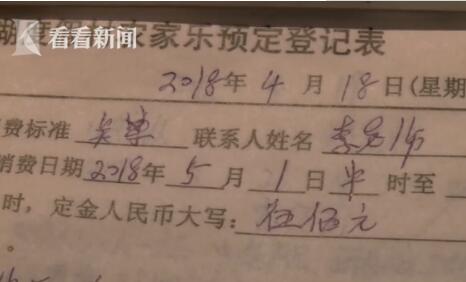 看看新闻
湖 农家乐预定登记表
2018年4月18日(星期
费标准 联系人姓名 李
消费日期2018年5月1日 时至
时，定金人民币大写：伍佰元
。